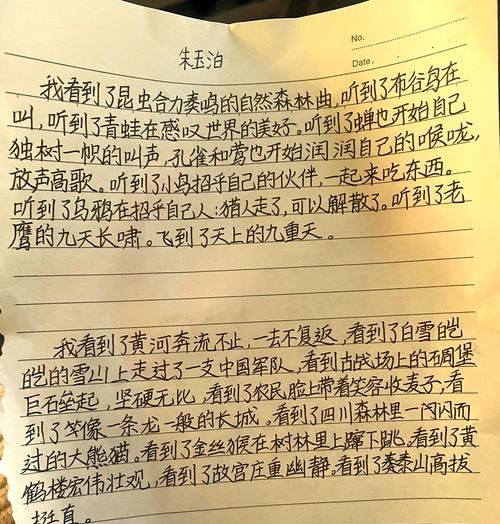 No.
Date.
朱玉泊
我看到了昆虫合力奏鸣的自然森林曲,听到了布谷鸟在
叫,听到了青蛙在感叹世界的美好。听到了蝉也开始自己
独树一帜的叫声,孔雀和莺也开始润润自己的喉咙,
放声高歌。听到了小鸟招乎自己的伙伴,一起来吃东西。
听到了乌鸦在招乎自己人:猎人走了,可以解散了。听到了老
鹰的九天长啸。飞到了天上的九重天。
我看到了黄河奔流不止,一去不复返,看到了白雪皑
皑的雪山上走过了一支中国军队,看到古战场上的碉堡
巨石垒起,坚硬无比,看到了农民脸上带着笑容收麦子,看
到了像一条龙一般的长城。看到了四川森林里一闪闪而
过的大熊猫。看到了金丝猴在树林里上蹿下跳。看到了黄
鹤楼宏伟壮观,看到了故宫庄重幽静。看到了泰山高拔
挺直。